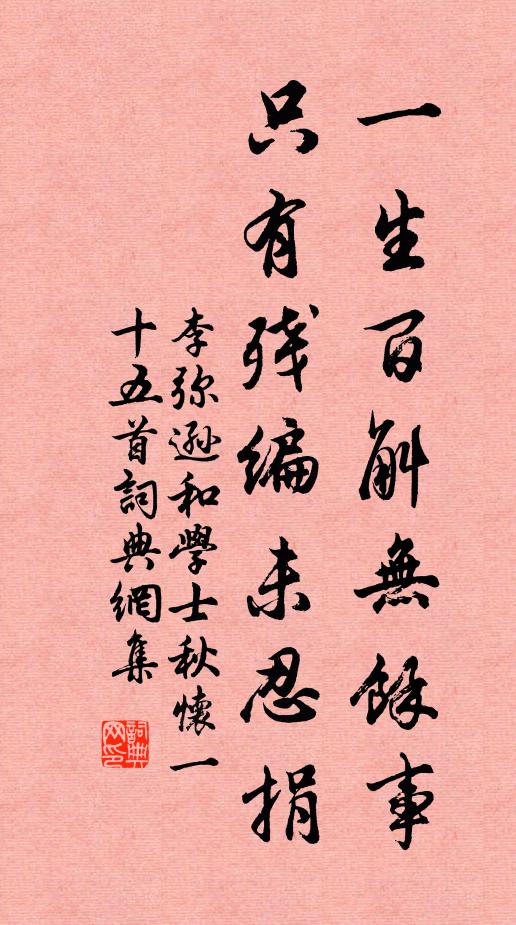 一生百斛無餘事
只有残编未忍捐
李弥遜和學士秋懷一
十五首詞典網集
詞典网印